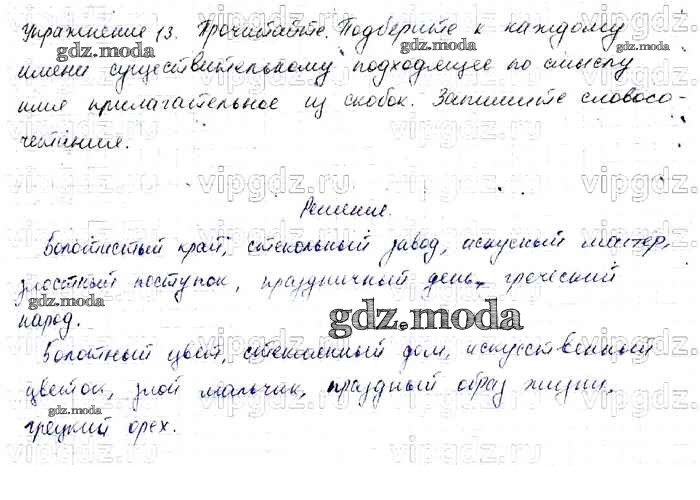 Упражнение 13. Прочитайте. Подберите к каждому
имени существительному подходящее по смыслу
имя прилагательное из скобок. Запишите словосо-
четания.
Решение.
Болотистый край, стекольный завод, искусный мастер,
злостный поступок, праздничный день, греческий
народ.
Болотный цвет, стеклянный дом, искусственный
цветок, злой мальчик, праздный образ жизни,
грецкий орех.
gdz.moda
gdz.moda
gdz.moda
gdz.moda
gdz.moda
gdz.moda
gdz.moda
vipgdz.ru
vipgdz.ru
vipgdz.ru
vipgdz.ru